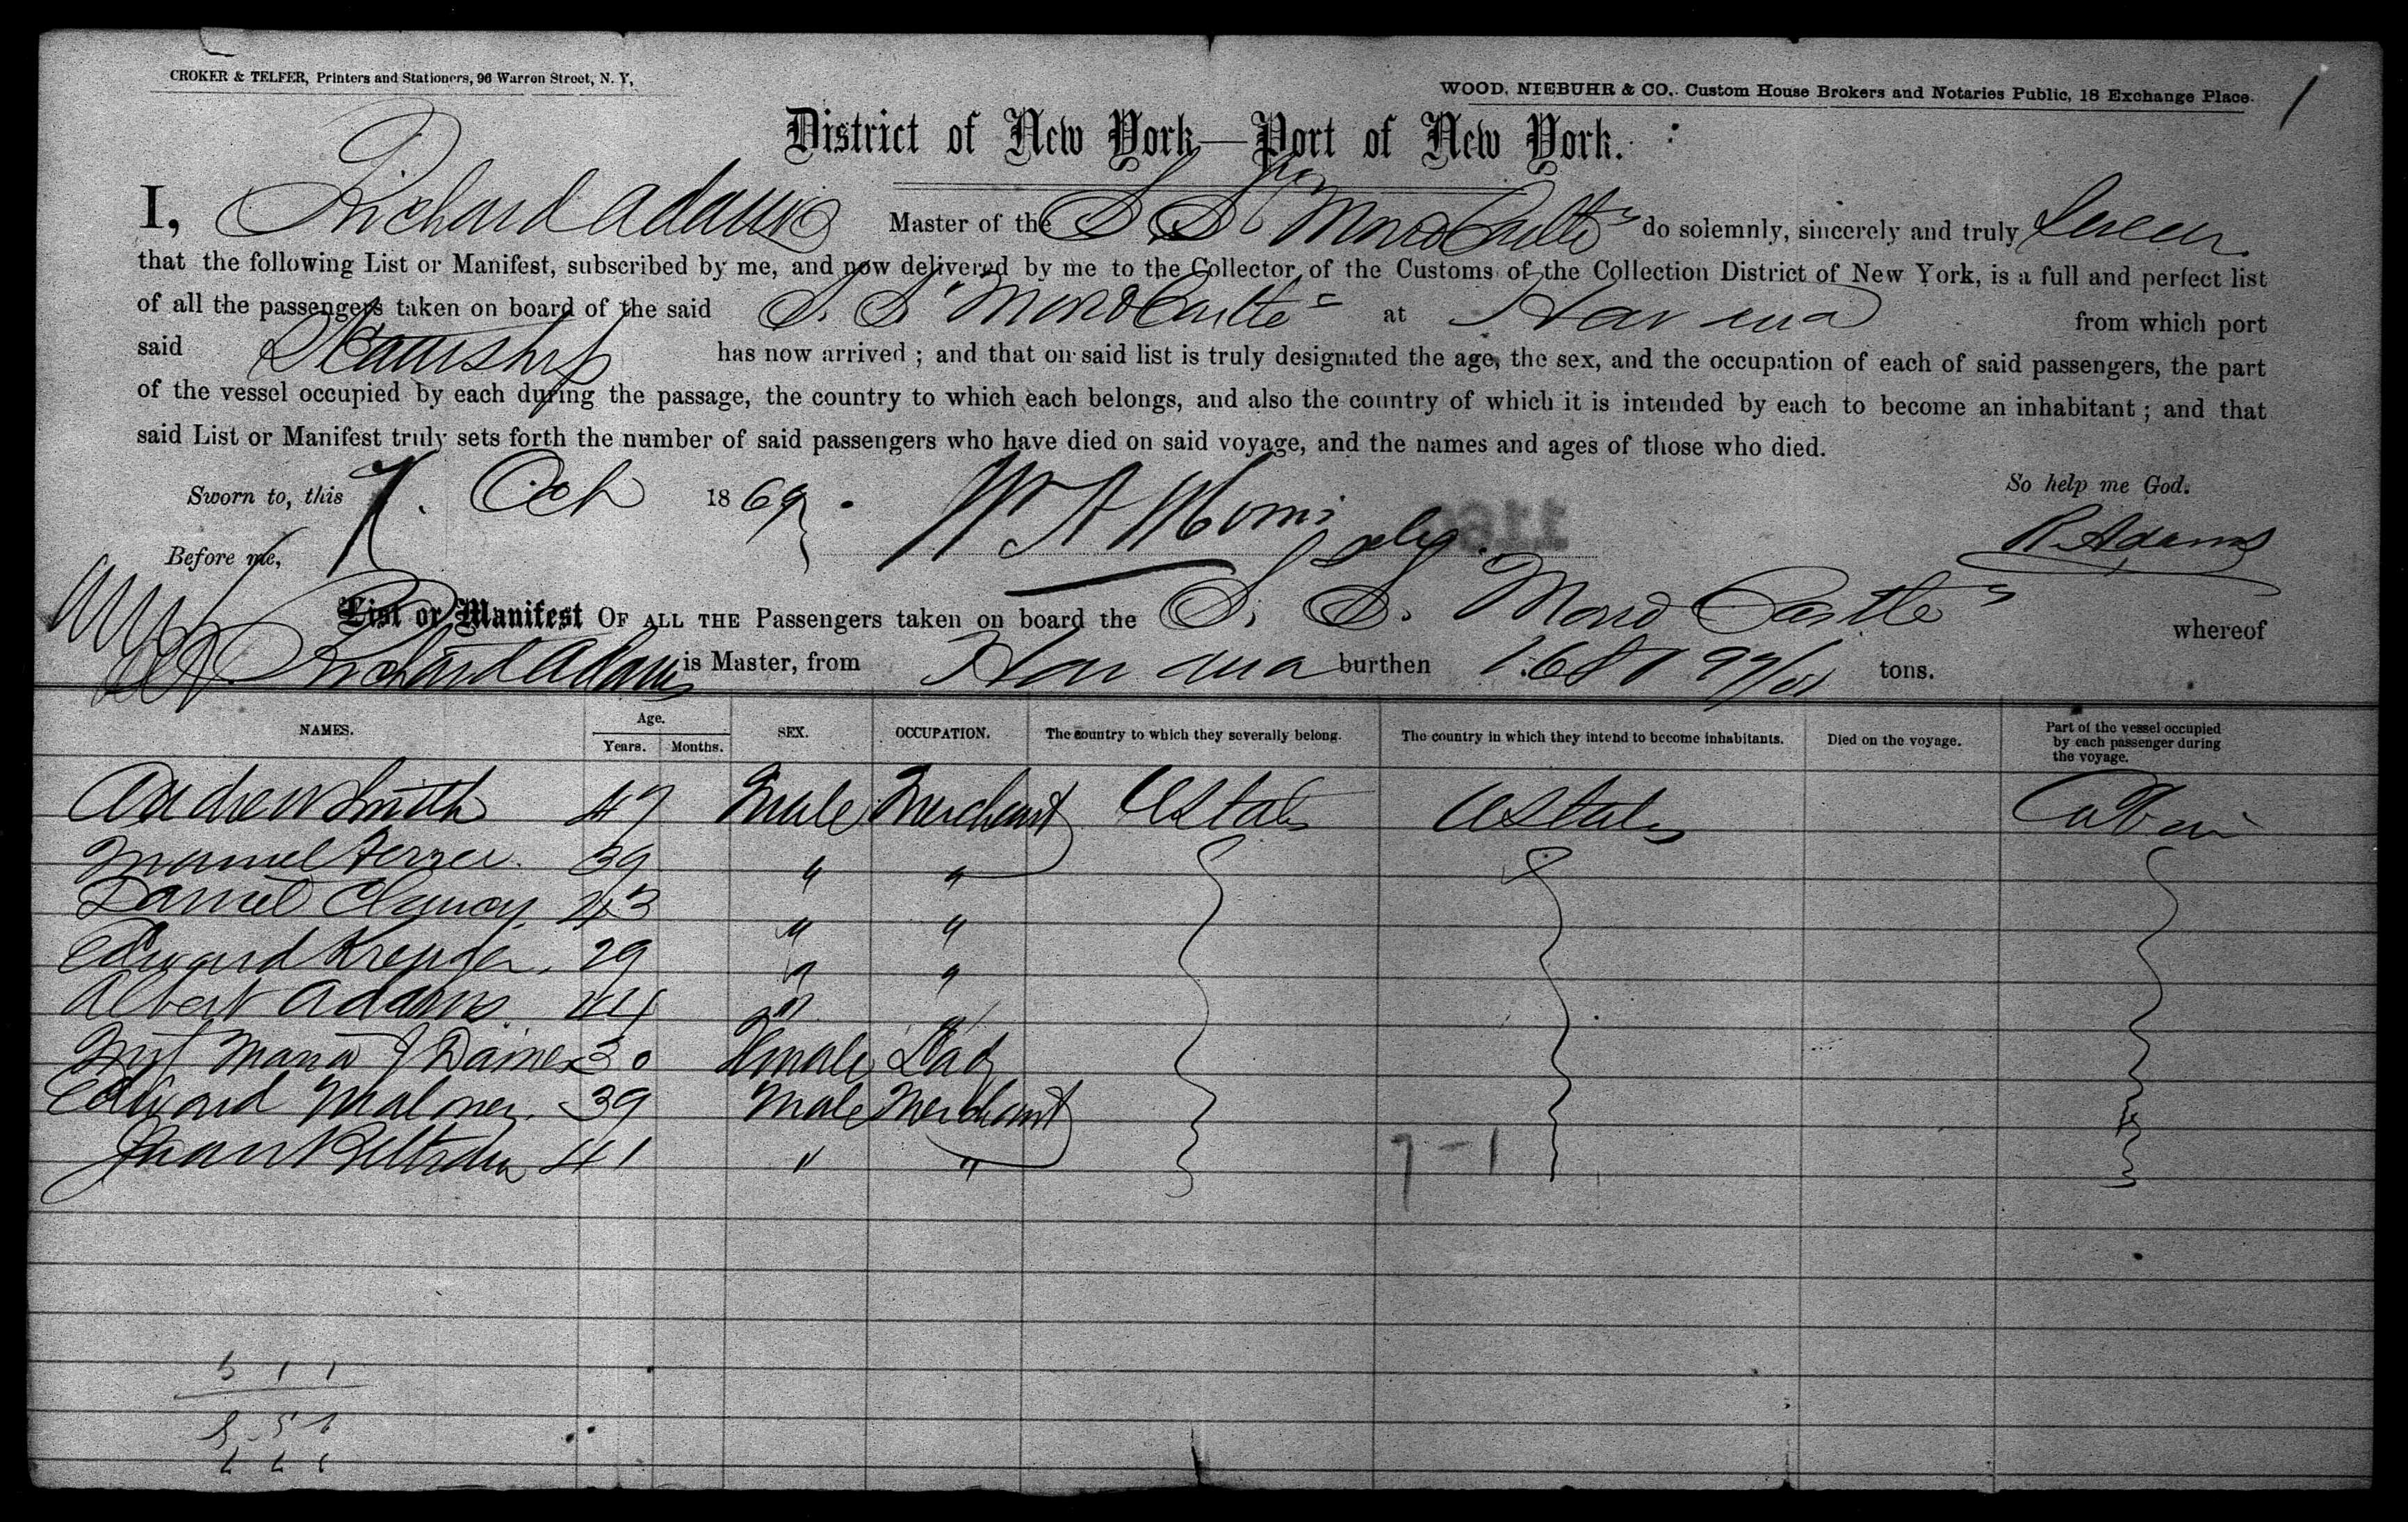 CROKER & TELFER, Printers and Stationers, 96 Warren Street, N. Y,
WOOD, NIEBUHR & CO,. Custom House Brokers and Notaries Public, 18 Exchange Place.
1
District of New York—Port of New York.
I, Richard Adams Master of the S S "Morro Castle" do solemnly, sincerely and truly swear
that the following List or Manifest, subscribed by me, and now delivered by me to the Collector of the Customs of the Collection District of New York, is a full and perfect list
of all the passengers taken on board of the said S. S. "Morro Castle" at Havana from which port
said Steamship has now arrived ; and that on said list is truly designated the age, the sex, and the occupation of each of said passengers, the part
of the vessel occupied by each during the passage, the country to which each belongs, and also the country of which it is intended by each to become an inhabitant ; and that
said List or Manifest truly sets forth the number of said passengers who have died on said voyage, and the names and ages of those who died.
Sworn to, this 7. Oct 1869 So help me God.
Before me, R. Adams
List or Manifest OF ALL THE Passengers taken on board the S. S. Morro Castle" whereof
Richard Adams is Master, from Havana burthen tons.
NAMES. Age. Years. Months. SEX. OCCUPATION. The country to which they severally belong. The country in which they intend to become inhabitants. Died on the voyage. Part of the vessel occupied by each passenger during the voyage.
Andrew Smith 47 Male Merchant UStates UStates Cabin
Manuel 39 " "
Daniel 43 " "
Edward 29 " "
Albert Adams 44 " "
Maria J Daines 30 Female Lady
Edward Maloney. 39 Male Merchant
Juan Beltran 41 " "
7-1